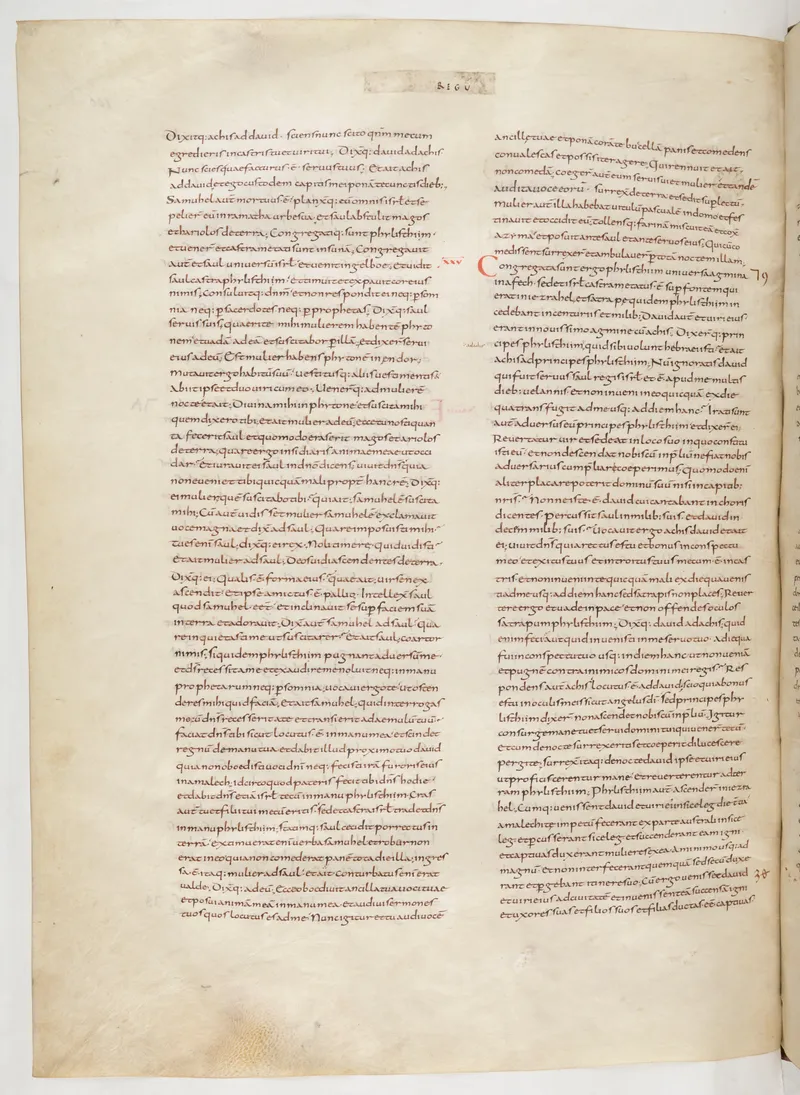 REGU
Dixitq: achis ad dauid. sciens nunc scito qnm mecum
egredieris in castris tu et uiri tui; Dixitq: dauid ad achis
Nunc scies quae facturus ē seruus tuus; Et ait achis
ad dauid et ego custodem capitis mei ponā te cunctis dieb;
Samuhel aut mortuus ē planxitq: eū omnis isrl et se
pelier eū in ramatha urbe sua, et saul abstulit magos
et hariolos de terra; Congregatiq: sunt phylisthiim
et uener et castra metati sunt in sunā; Congregauit
aut et saul uniuersū isrl et uenit in gelboe; et uidit
saul castra phylisthiim et timuit et expauit cor eius
nimis; Consuluitq: dnm et non respondit ei neq: p som
nia neq: p sacerdotes neq: p prophetas; Dixitq: saul
seruis suis; quaerite mihi mulierem habentē phyto
nem et uadā ad eā et suscitabor p illā; et dixer serui
eius ad eū; Est mulier habens phytonē in endor;
mutauit ergo habitū suū uestitusq: aliis uestimentis
abiit ipse et duo uiri cum eo; Uenerq: ad mulierē
nocte et ait; Diuina mihi in phytone et suscita mihi
quem dixero tibi; et ait mulier ad eū; ecce tu nosti quan
ta fecerit saul et quomodo eraserit magos et ariolos
de terra; quare ergo insidiaris animae meae ut occi
dar; Et iurauit ei saul in dnō dicens; uiuit dns quia
non eueniet tibi quicquā mali propt hanc rē; Dixitq:
ei mulier; quē suscitabo tibi qui ait; samuhelē suscita
mihi; Cū aut uidisset mulier samuhelē exclamauit
uoce magna et dixit ad saul; Quare imposuisti mihi
tu es enī saul; dixitq: ei rex; Noli timere quid uidisti
et ait mulier ad saul; Deos uidi ascendentes de terra
Dixitq: ei; Qualis ē forma eius quae ait; uir senex
ascendit et ipse amictus ē pallio; Intellexit saul
quod samuhel eēt et inclinauit se sup faciem suā
in terra et adorauit; Dixit aut samuhel ad saul; qua
re inquietasti me ut suscitarer et ait saul; coartor
nimis; siquidem phylisthiim pugnant aduersū me
et ds recessit a me et exaudire me noluit neq: in manu
prophetarum neq: p somnia; uocaui ergo te ut osten
deres mihi quid faciā; et ait samuhel; quid interrogas
me cū dns recesserit a te et transierit ad aemulū tuū
faciet dns tibi sicut locutus ē in manu mea et scindet
regnū de manu tua et dabit illud proximo tuo dauid
quia non obedisti uoci dnī neq: fecisti irā furoris eius
in amalech; idcirco quod pateris fecit tibi dns hodie
et dabit dns etiā isrl tecū in manu phylisthiim; Cras
aut tu et filii tui mecū eritis; sed et castra isrl tradet dns
in manu phylisthiim; statimq: saul cecidit porrectus in
terrā; extimuerat enī uerba samuhel et robur non
erat in eo quia non comederat panē tota die illa; ingres
sa ē itaq: mulier ad saul et ait; conturbatus enī erat
ualde; Dixitq: ad eū; Ecce oboediuit ancilla tua uoci tuae
et posui animā meā in manu mea et audiui sermones
tuos quos locutus es ad me; Nunc igitur et tu audi uocē
ancillae tuae et ponā corā te bucellā panis et comedens
conualescas et possis iter agere; Qui rennuit et ait
non comedā; coeger aut eum serui sui et mulier et tandē
audita uoce eorū surrexit de terra et sedit sup lectū
mulier aut illa habebat uitulū pascualē in domo et fes
tinauit et occidit eū; tollensq: farinā miscuit eā et coxit
azyma; et posuit ante saul et ante seruos eius; Qui cū co
medissent surrexer et ambulauer p totā noctem illam;
XXV
Congregata sunt ergo phylisthiim uniuersa agmina
in afech; sed et isrl castra metatus ē sup fontem qui
erat in iezrahel, et satrapae quidem phylisthiim in
cedebant in centuriis et milib; Dauid aut et uiri eius
erant in nouissimo agmine cū achis; Dixerq: prin
cipes phylisthiim; quid sibi uolunt hebraei isti et ait
achis ad principes phylisthiim; Nū ignoratis dauid
qui fuit seruus saul regis isrl et ē apud me multis
dieb; uel annis et non inueni in eo quicquā ex die
qua transfugit ad me usq: ad diem hanc; Irati sunt
aut aduersus eū principes phylisthiim et dixer ei
Reuertatur uir et sedeat in loco suo in quo constitu
isti eū et non descendat nobiscū in pliū ne fiat nobis
aduersarius cum pliari coeperimus; quomodo enī
aliter placare poterit dominū suū nisi in capitib:
nris; Nonne iste ē dauid cui cantabant in choris
dicentes; percussit saul in milib; suis; et dauid in
decem milib; suis; Uocauit ergo achis dauid et ait
ei; uiuit dns quia rectus es tu et bonus in conspectu
meo et exitus tuus et introitus tuus mecum ē in cas
tris et non inueni in te quicquā mali ex die qua uenis
ti ad me usq: ad diem hanc sed satrapis non places; Reuer
tere ergo et uade in pace et non offendes oculos
satrapum phylisthiim; Dixitq: dauid ad achis; quid
enim feci aut quid inuenisti in me seruo tuo a die qua
fui in conspectu tuo usq: in diem hanc ut non ueniā
et pugnē contra inimicos domini mei regis; Res
pondens aut achis locutus ē ad dauid; scio quia bonus
es tu in oculis meis sicut angelus di; sed principes phy
listhiim dixer non ascendet nobiscū in pliū; Igitur
consurge mane tu et serui domini tui qui uener tecū
et cum de nocte surrexeritis et coeperit dilucescere
pergite; surrexit itaq: de nocte dauid ipse et uiri eius
ut proficiscerentur mane et reuerterentur ad ter
ram phylisthiim; Phylisthiim aut ascender in iezra
hel; Cumq: uenissent dauid et uiri eius in siceleg die tertia
amalechitae impetū fecerant ex parte australi in sice
leg; et pcusserant siceleg et succenderant eam igni
et captiuas duxerant mulieres ex ea a minimo usq: ad
magnū et non interfecerant quemquā sed secū duxe
rant et pgebant itinere suo; Cū ergo uenisset dauid
et uiri eius ad ciuitatē et inuenissent eā succensā igni
et uxores suas et filios suos et filias ductas eē captiuas